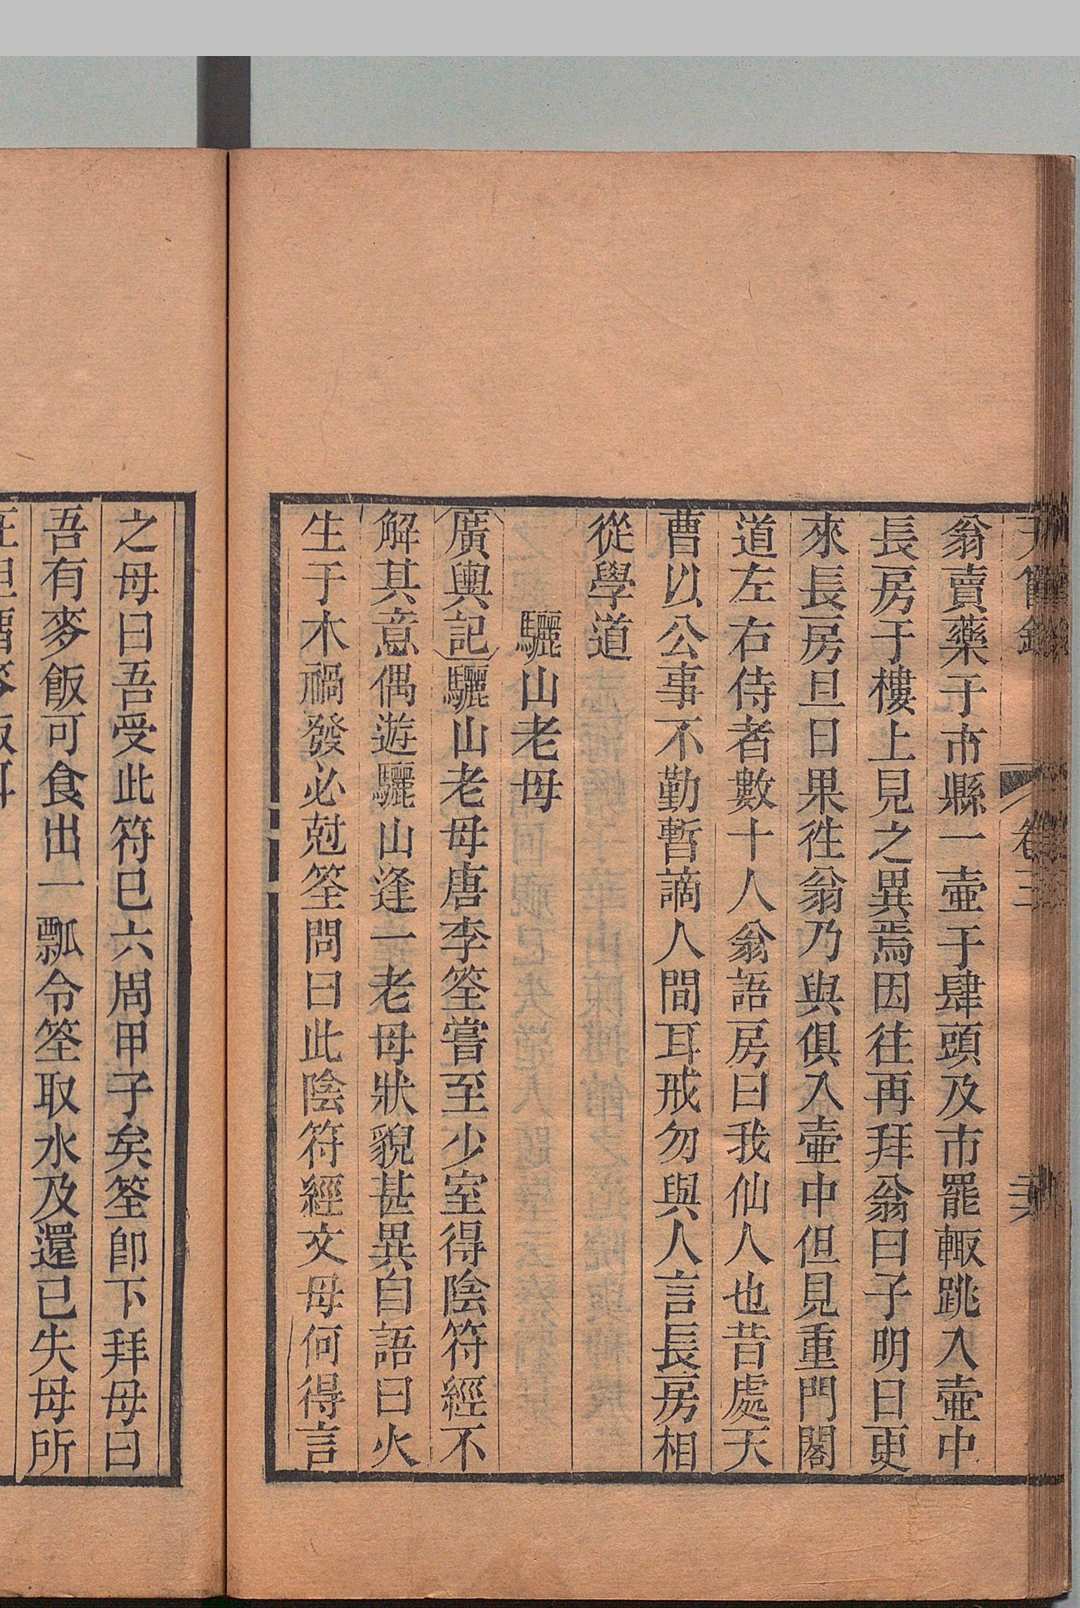 翁賣藥于市縣一壺于肆頭及市罷輙跳入壺中
長房于樓上見之異焉因往再拜翁曰子明日更
來長房旦日果徃翁乃與俱入壺中但見重門閣
道左右侍者數十人翁語房曰我仙人也昔處天
曹以公事不勤暫謫人間耳戒勿與人言長房相
從學道
驪山老母
廣輿記驪山老母唐李筌嘗至少室得陰符經不
解其意偶遊驪山逢一老母狀貌甚異自語曰火
生于木禍發必尅筌問曰此陰符經文母何得言
之母曰吾受此符已六周甲子矣筌卽下拜母曰
吾有麥飯可食出一瓢令筌取水及還已失母所